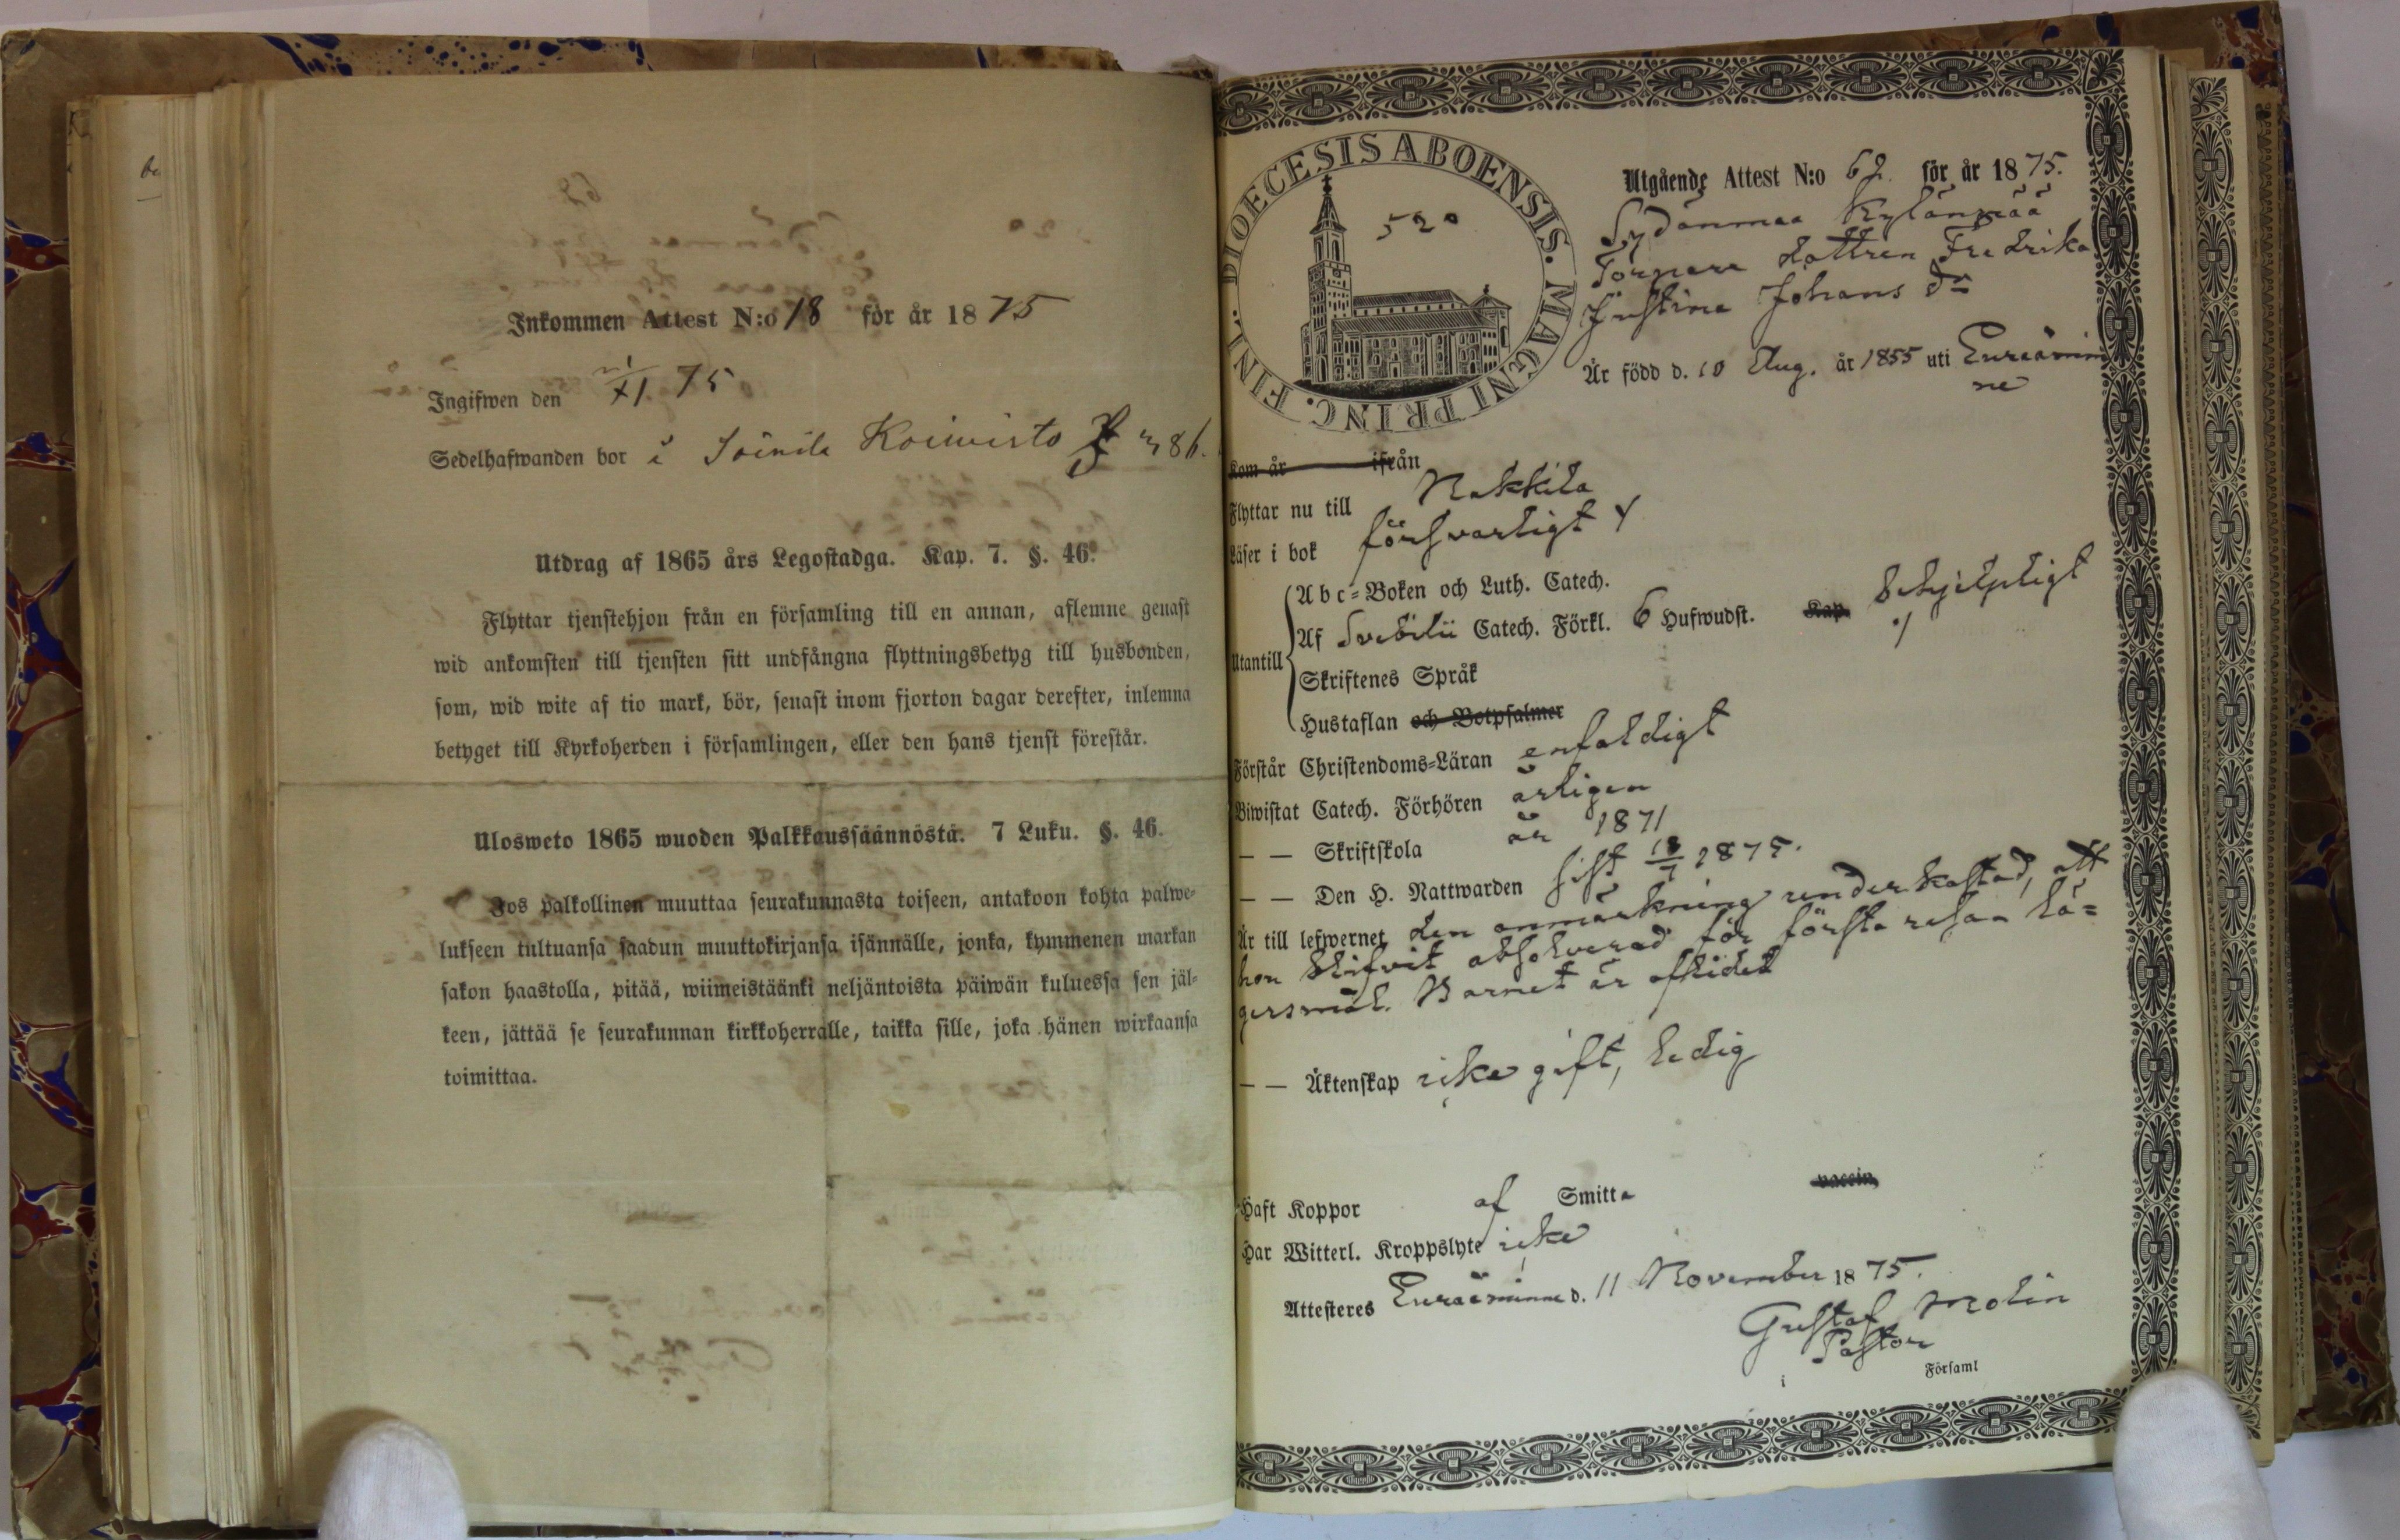 Inkommen Attest N:o 18 för år 1875
Ingifwen den XI. 75
Sedelhafwanden bor i Soinila Koiwisto 386.
Utdrag af 1865 års Legostadga. Kap. 7. §. 46.
Flyttar tjenstehjon från en församling till en annan, aflemne genast
wid ankomsten till tjensten sitt undfångna flyttningsbetyg till husbonden,
som, wid wite af tio mark, bör, senast inom fjorton dagar derefter, inlemna
betyget till Kyrkoherden i församlingen, eller den hans tjenst förestår.
Ulosweto 1865 wuoden Palkkaussäännöstä. 7 Luku. §. 46.
Jos palkollinen muuttaa seurakunnasta toiseen, antakoon kohta palwe-
lukseen tultuansa saadun muuttokirjansa isännälle, jonka, kymmenen markan
sakon haastolla, pitää, wiimeistäänki neljäntoista päiwän kuluessa sen jäl-
keen, jättää se seurakunnan kirkkoherralle, taikka sille, joka hänen wirkaansa
toimittaa.
DIOECESIS ABOENSIS. MAGNI PRINC. FINL.
520
Utgående Attest N:o 69. för år 1875.
Sydänmaa Kylänpää
Torpare dottren Fredrika
Justina Johans dr
Är född d. 10 Aug. år 1855 uti Euraåmin
ne
Kom år ifrån
Flyttar nu till Nakkila
Läser i bok försvarligt
Abc-Boken och Luth. Catech.
Utantill Af Svebilii Catech. Förkl. 6 Hufwudst. Kap. behjelpligt
Skriftenes Språk
Hustaflan och Botpsalmer
Förstår Christendoms-Läran enfaldigt
Biwistat Catech. Förhören årligen
— — Skriftskola år 1871
— — Den H. Nattwarden sist 18/7 1875.
Är till lefwernet den anmärkning underkastad, att
hon blifvit absolverad för första resan lä-
gersmål. Barnet är aflidet
— — Äktenskap icke gift, ledig
Haft Koppor af Smitta vaccin.
Har Witterl. Kroppslyte icke
Attesteres Euraåminne d. 11 November 1875.
Gustaf Molin
Pastor
i Församl